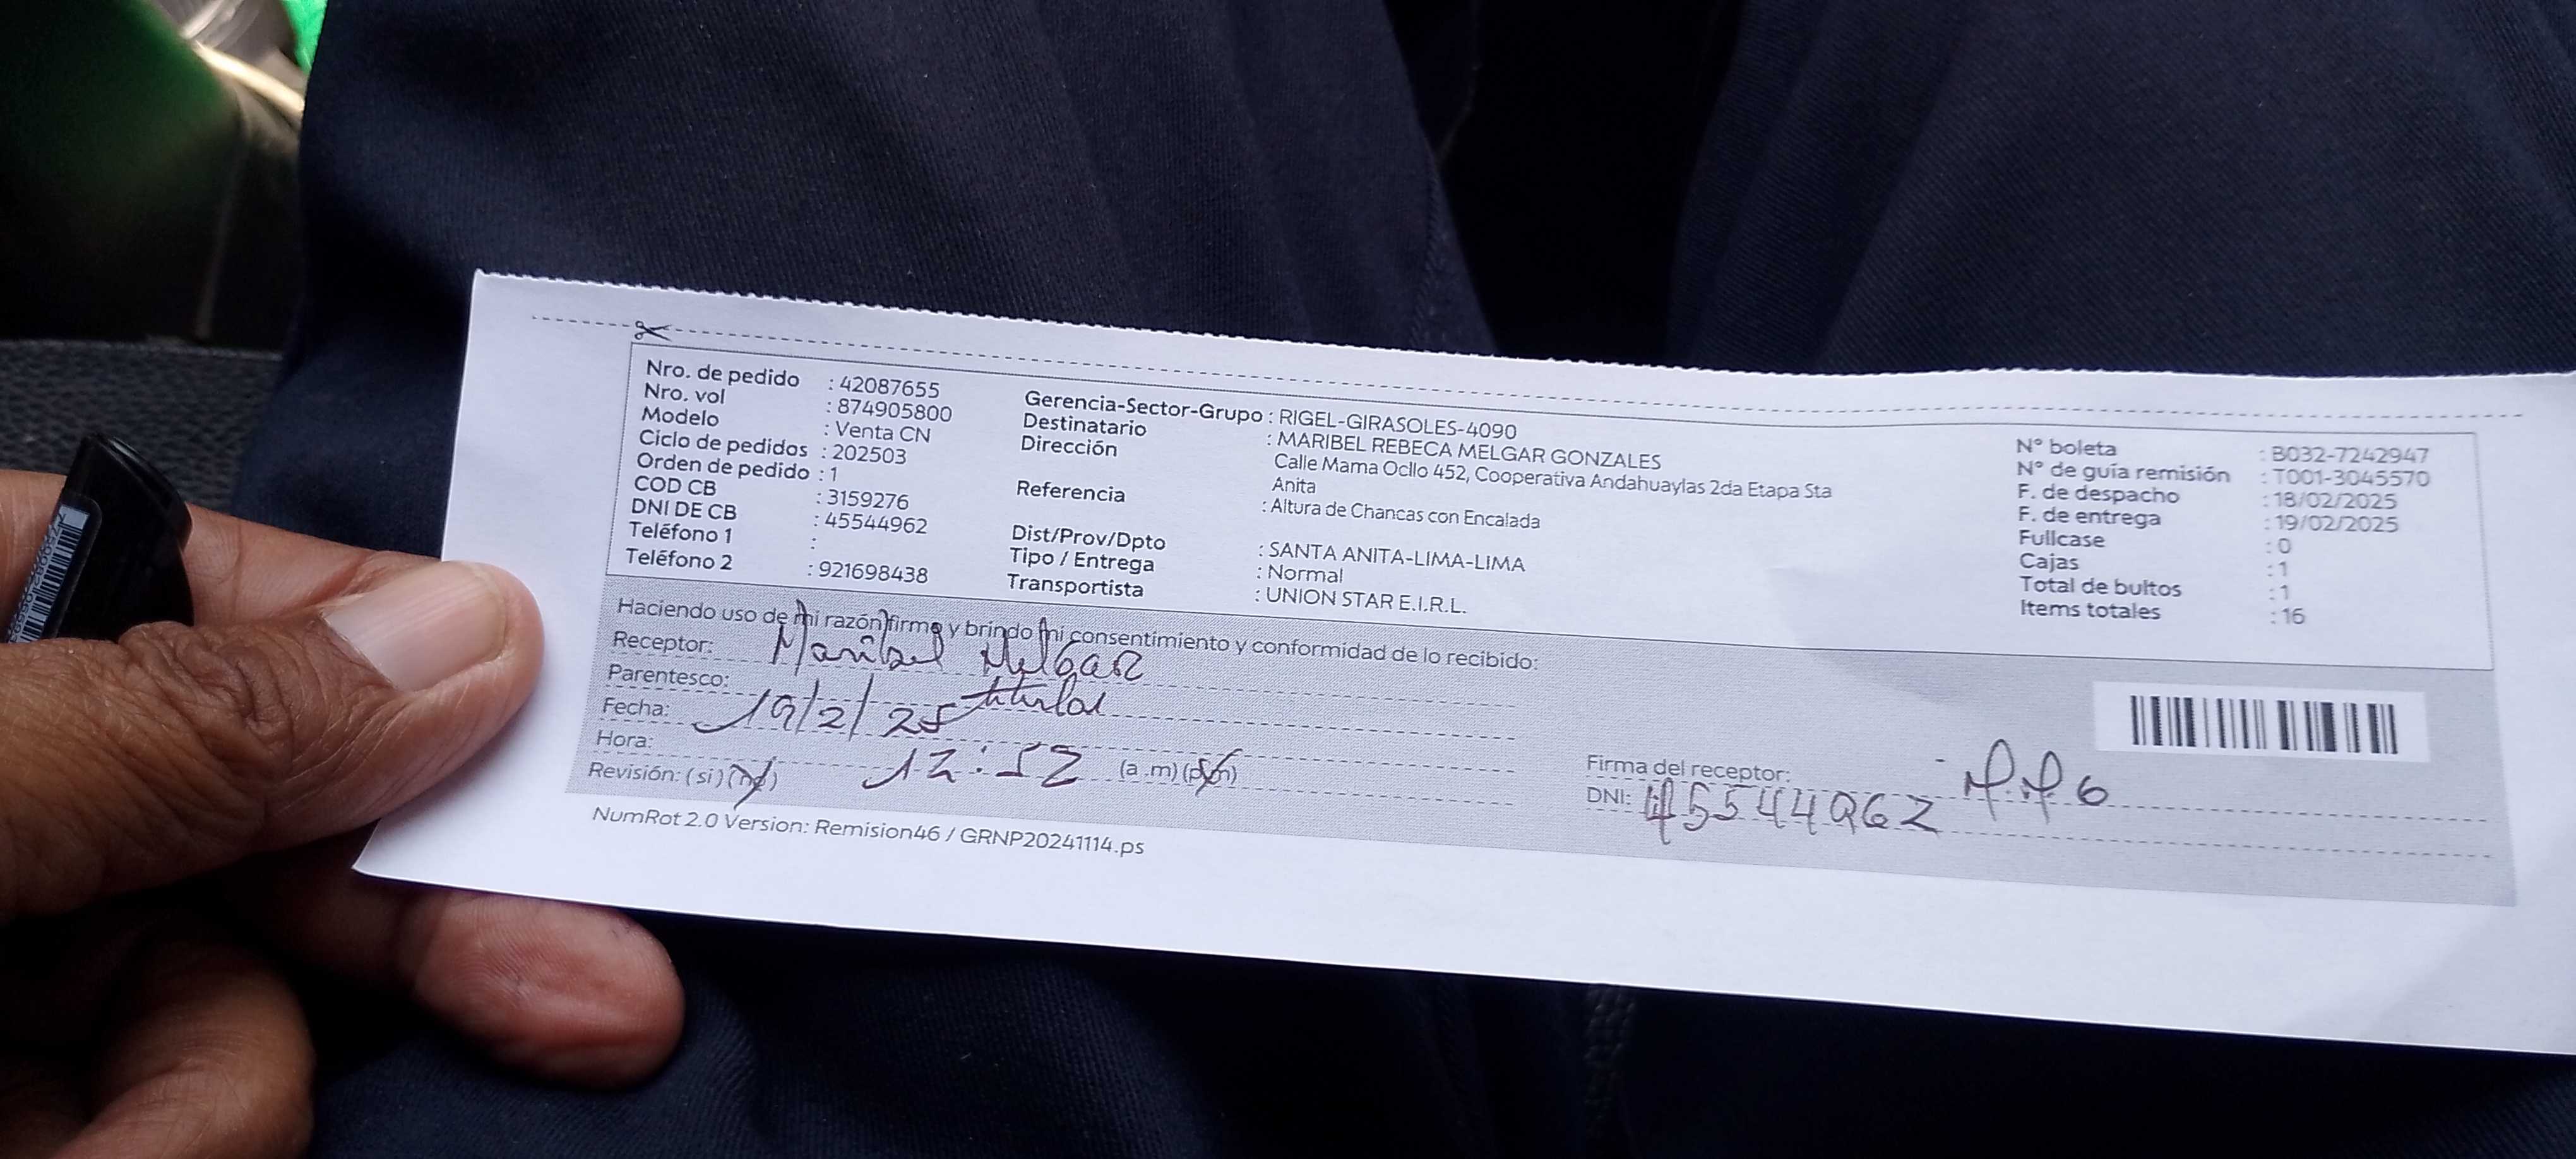 Nro. de pedido : 42087655
Nro. vol : 874905800
Modelo : Venta CN
Ciclo de pedidos : 202503
Orden de pedido : 1
COD CB : 3159276
DNI DE CB : 45544962
Teléfono 1 :
Teléfono 2 : 921698438
Gerencia-Sector-Grupo : RIGEL-GIRASOLES-4090
Destinatario : MARIBEL REBECA MELGAR GONZALES
Dirección Calle Mama Ocllo 452, Cooperativa Andahuaylas 2da Etapa Sta
Anita
Referencia : Altura de Chancas con Encalada
Dist/Prov/Dpto : SANTA ANITA-LIMA-LIMA
Tipo / Entrega : Normal
Transportista : UNION STAR E.I.R.L.
N° boleta : B032-7242947
N° de guía remisión : T001-3045570
F. de despacho : 18/02/2025
F. de entrega : 19/02/2025
Fullcase : 0
Cajas : 1
Total de bultos : 1
Items totales : 16
Haciendo uso de mi razón firmo y brindo mi consentimiento y conformidad de lo recibido:
Receptor: Maribel Melgar
Parentesco: titular
Fecha: 19/2/25
Hora: 12:52 (a.m) (pm)
Revisión: (si) (no)
Firma del receptor: M.M.G
DNI: 45544962
NumRot 2.0 Version: Remision46 / GRNP20241114.ps